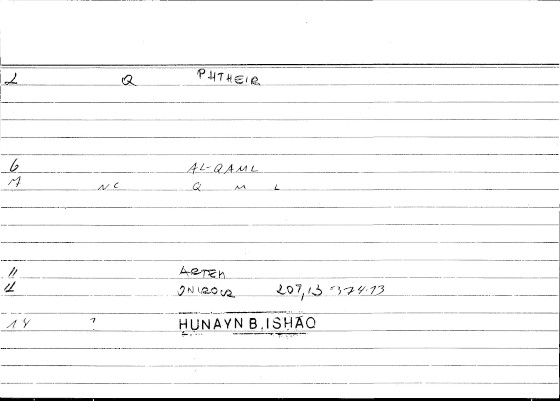 2 Q PHTHEIR
6 AL-QAML
M NC Q M L
11 ARTEM
4 ONIROCR 207,13 374.13
14 ? HUNAYN B. ISHAQ